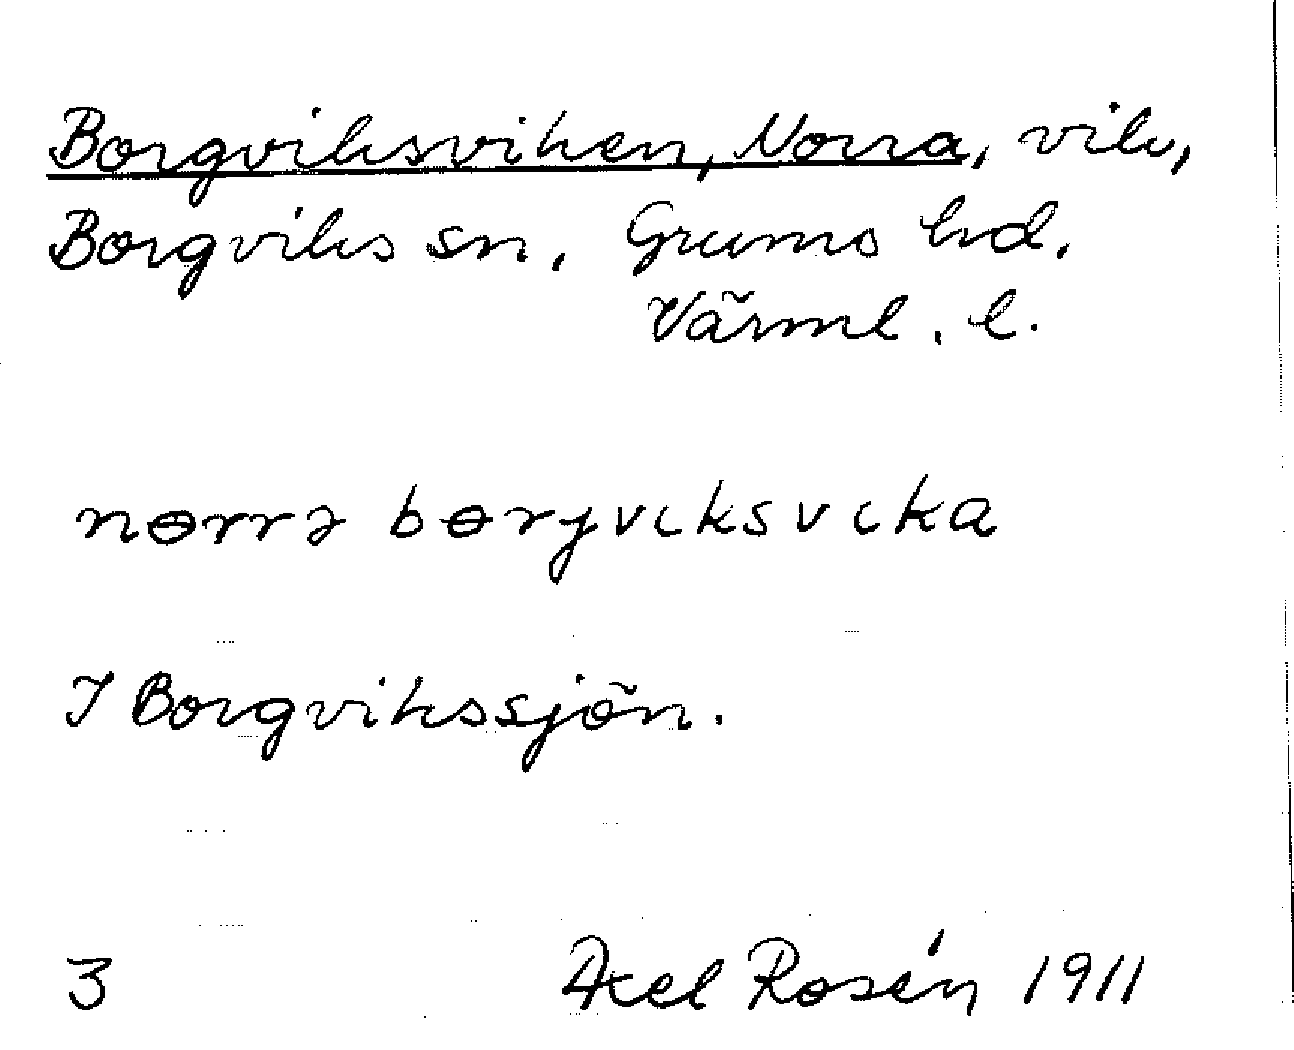 Borgviksviken, Norra, vik,
Borgviks sn. Grums hd.
Värml. l.
nɵrrə bɵrjvıksvıka
I Borgvikssjön.
3 Axel Rosén 1911